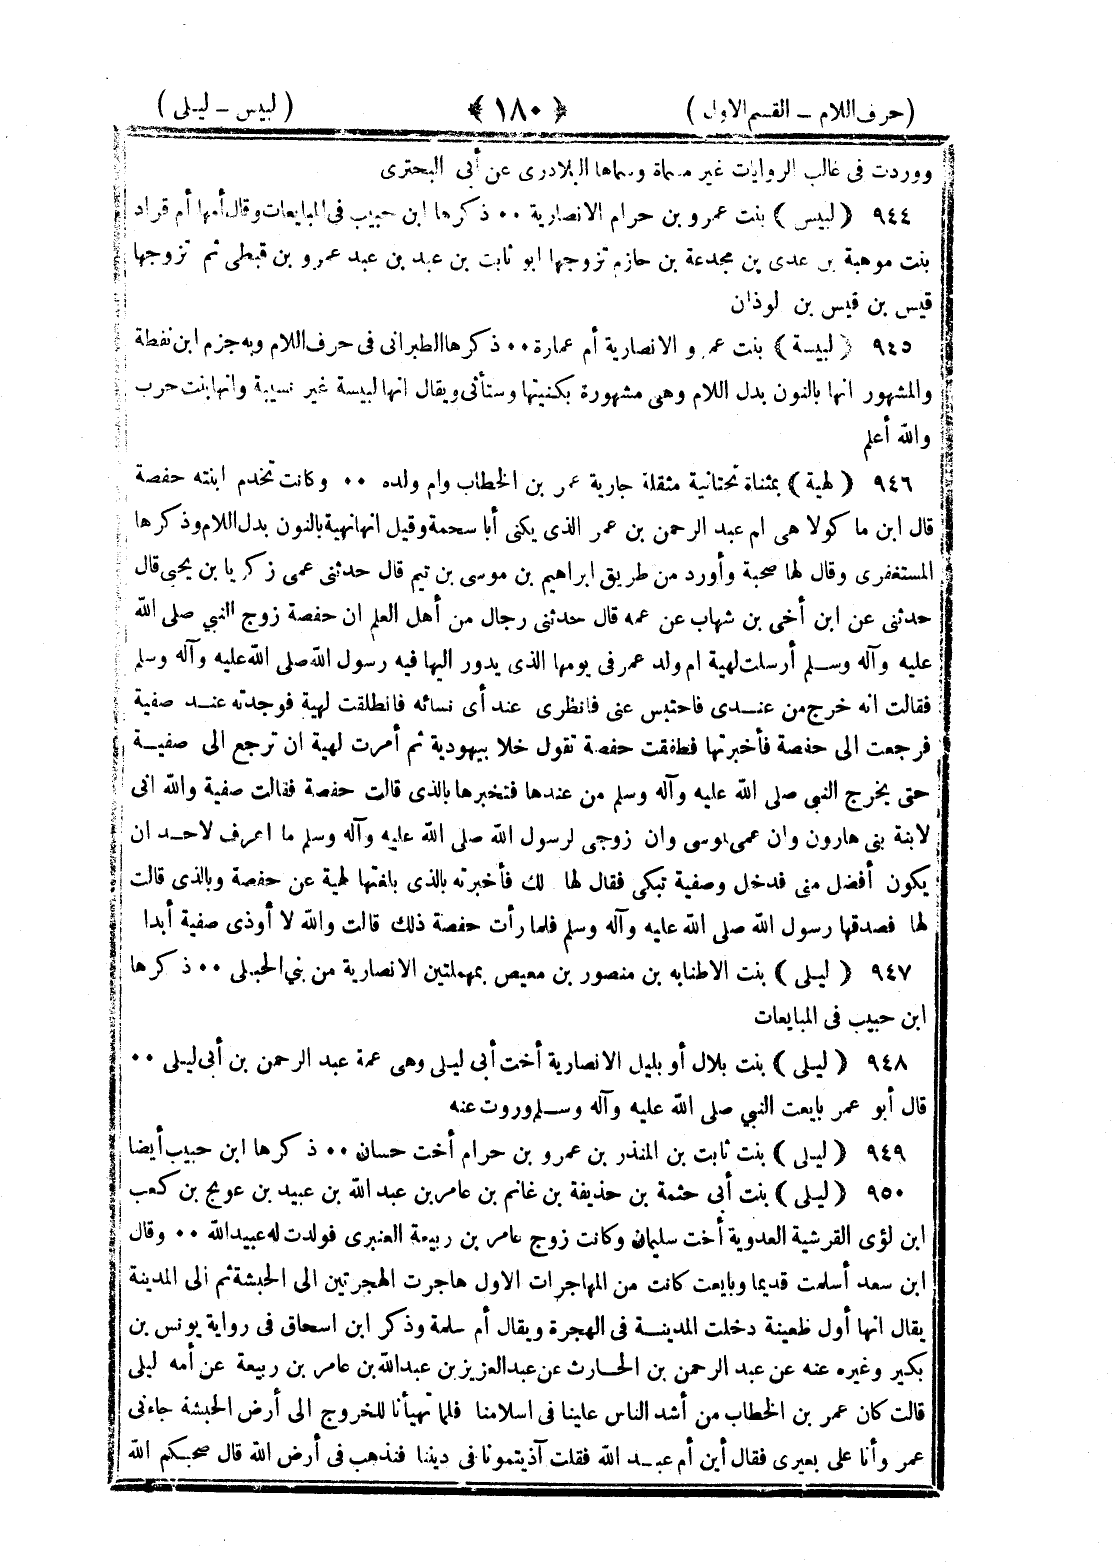 (حرف اللام – القسم الاول) ﴿١٨٠﴾ (لبيس – ليلى)
ووردت فى غالب الروايات غير مسماة وسماها البلادرى عن أبى البحترى
٩٤٤ (لبيس) بنت عمرو بن حرام الانصارية ٠٠ ذكرها ابن حبيب فى المبايعات وقال أمها أم قراد
بنت موهبة بن عدى بن مجدعة بن حازم تزوجها ابو ثابت بن عبد بن عبد عمرو بن قبطى ثم تزوجها
قيس بن قيس بن لوذان
٩٤٥ (لبيسة) بنت عمرو الانصارية أم عمارة ٠٠ ذكرها الطبرانى فى حرف اللام وبه جزم ابن نفطة
والمشهور انها بالنون بدل اللام وهى مشهورة بكنيتها وستأتى ويقال انها لبيسة غير نسيبة وانها بنت حرب
والله أعلم
٩٤٦ (لهية) بمثناة تحتانية مثقلة جارية عمر بن الخطاب وام ولده ٠٠ وكانت تخدم ابنته حفصة
قال ابن ماكولا هى ام عبد الرحمن بن عمر الذى يكنى أبا سحمة وقيل انها نهية بالنون بدل اللام وذكرها
المستغفرى وقال لها صحبة وأورد من طريق ابراهيم بن موسى بن تيم قال حدثنى عمى زكريا بن يحيى قال
حدثنى عن ابن أخى بن شهاب عن عمه قال حدثنى رجال من أهل العلم ان حفصة زوج النبي صلى الله
عليه وآله وسلم أرسلت لهية ام ولد عمر فى يومها الذى يدور اليها فيه رسول الله صلى الله عليه وآله وسلم
فقالت انه خرج من عندى فاحتبس عنى فانظرى عند أى نسائه فانطلقت لهية فوجدته عند صفية
فرجعت الى حفصة فأخبرتها فطفقت حفصة تقول خلا بيهودية ثم أمرت لهية ان ترجع الى صفية
حتى يخرج النبي صلى الله عليه وآله وسلم من عندها فتخبرها بالذى قالت حفصة فقالت صفية والله انى
لابنة بنى هارون وان عمى موسى وان زوجى لرسول الله صلى الله عليه وآله وسلم ما اعرف لاحد ان
يكون أفضل منى فدخل وصفية تبكى فقال لها لك فأخبرته بالذى بلغتها لهية عن حفصة وبالذى قالت
لها فصدقها رسول الله صلى الله عليه وآله وسلم فلما رأت حفصة ذلك قالت والله لا أوذى صفية أبدا
٩٤٧ (ليلى) بنت الاطنابه بن منصور بن معيص بمهملتين الانصارية من بني الحبلى ٠٠ ذكرها
ابن حبيب فى المبايعات
٩٤٨ (ليلى) بنت بلال أو بليل الانصارية أخت أبى ليلى وهى عمة عبد الرحمن بن أبى ليلى ٠٠
قال أبو عمر بايعت النبي صلى الله عليه وآله وسلم وروت عنه
٩٤٩ (ليلى) بنت ثابت بن المنذر بن عمرو بن حرام أخت حسان ٠٠ ذكرها ابن حبيب أيضا
٩٥٠ (ليلى) بنت أبى حثمة بن حذيفة بن غانم بن عامر بن عبد الله بن عبيد بن عويج بن كعب
ابن لؤى القرشية العدوية أخت سليمان وكانت زوج عامر بن ربيعة العنبرى فولدت له عبيد الله ٠٠ وقال
ابن سعد أسلمت قديما وبايعت كانت من المهاجرات الاول هاجرت الهجرتين الى الحبشة ثم الى المدينة
يقال انها أول ظعينة دخلت المدينة فى الهجرة ويقال أم سلمة وذكر ابن اسحاق فى رواية يونس بن
بكير وغيره عنه عن عبد الرحمن بن الحارث عن عبد العزيز بن عبد الله بن عامر بن ربيعة عن أمه ليلى
قالت كان عمر بن الخطاب من أشد الناس علينا فى اسلامنا فلما تهيأنا للخروج الى أرض الحبشة جاءنى
عمر وأنا على بعيرى فقال أين أم عبد الله فقلت آذيتمونا فى ديننا فنذهب فى أرض الله قال صحبكم الله